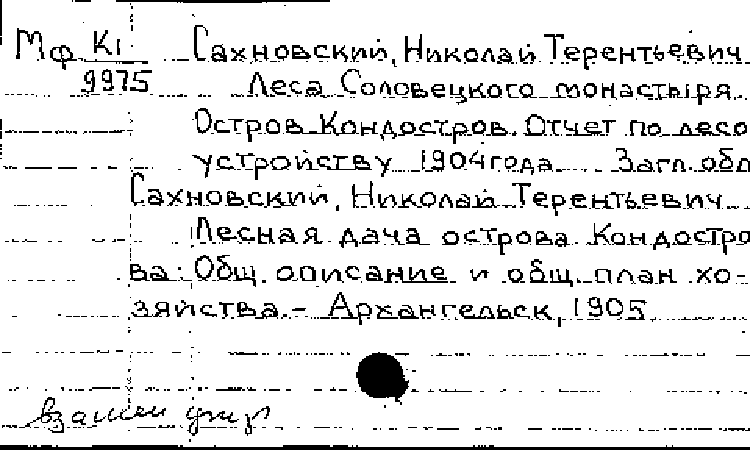 Мф К1 Сахновский, Николай Терентьевич
9975 Леса Соловецкого монастыря.
Остров Кондостров. Отчет по лесо
устройству 1904 года. Загл. обл
Сахновский, Николай Терентьевич
Лесная дача острова Кондостро
ва: Общ. описание и общ. план хо-
зяйства. - Архангельск, 1905
взамен